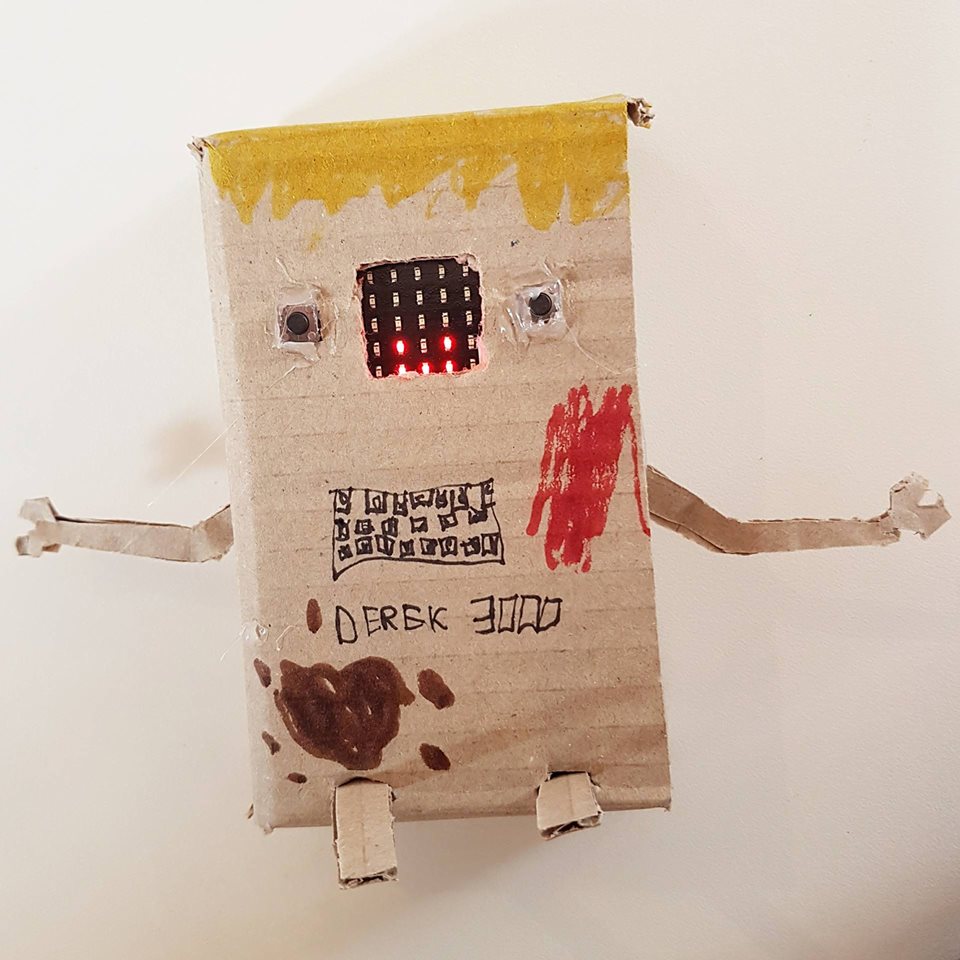 DEREK 3000